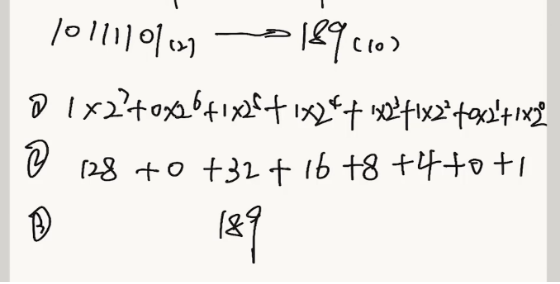 10111101(2) → 189(10)
① 1×2⁷+0×2⁶+1×2⁵+1×2⁴+1×2³+1×2²+0×2¹+1×2⁰
② 128 + 0 + 32 + 16 + 8 + 4 + 0 + 1
③ 189